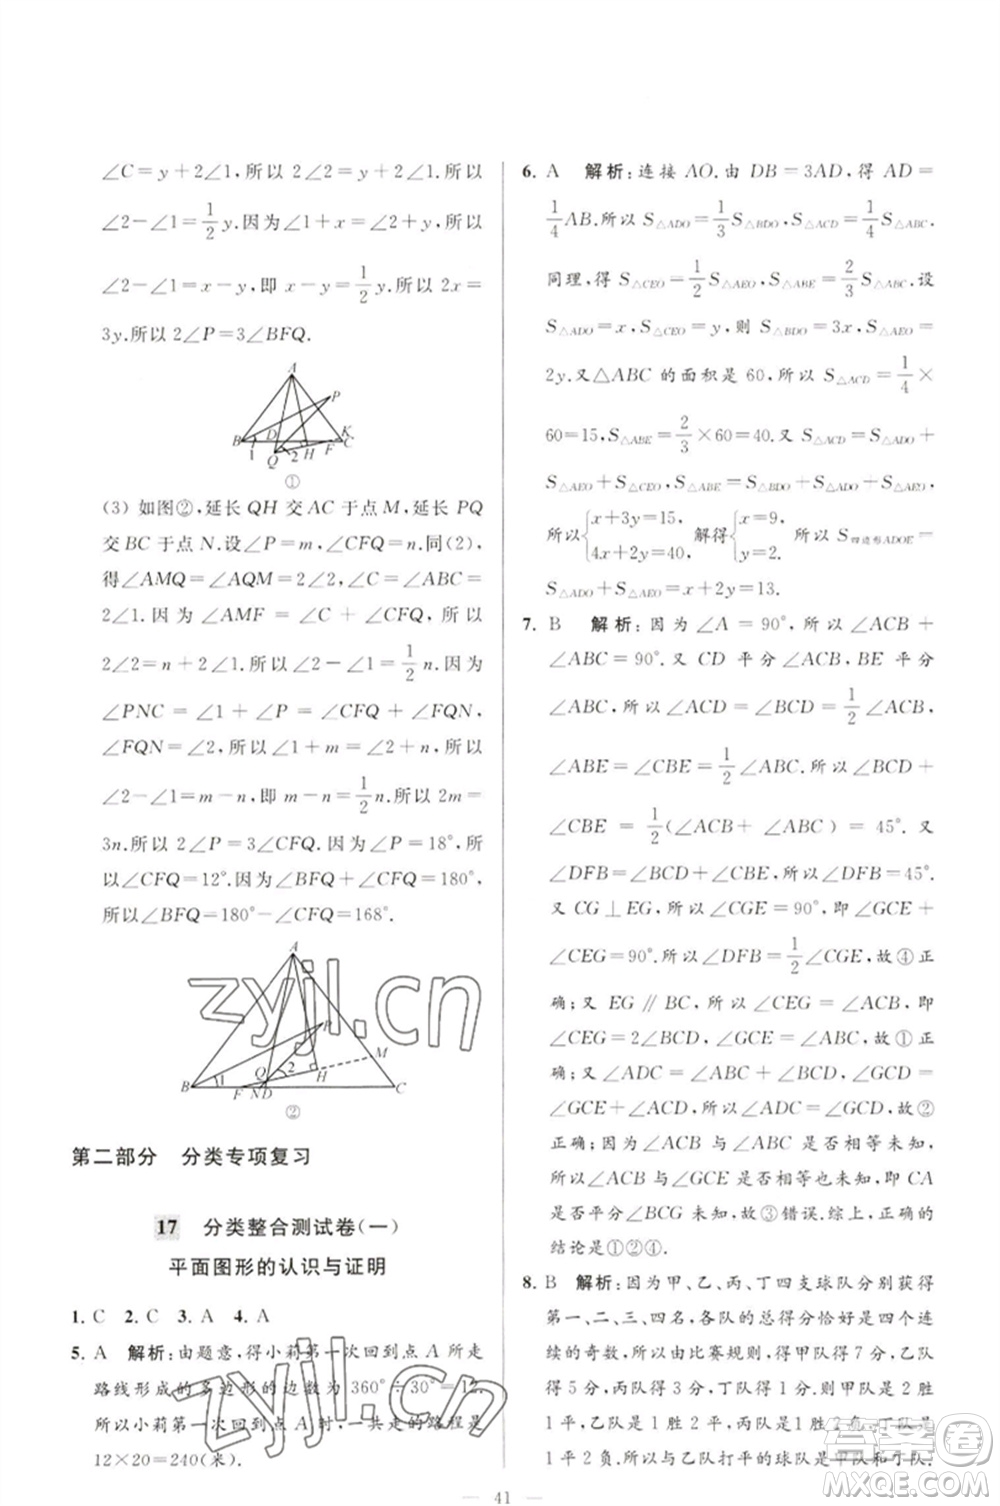 ∠C=y+2∠1,所以∠1+x=y+2∠1.所以
∠2-∠1=1/2 y.因为∠1+x=∠2+y,所以
∠2-∠1=x-y,即 x-y=1/2 y.所以 2x=
3y.所以 2∠P=3∠BFQ.
A
P
B
D
K
1
Q
2
H
F
C
①
(3) 如图②,延长 QH 交 AC 于点 M,延长 PQ
交 BC 于点 N.设∠P=m,∠CFQ=n.同(2),
得∠AMQ=∠AQM=2∠2,∠C=∠ABC=
2∠1.因为∠AMF=∠C+∠CFQ,所以
2∠2=n+2∠1.所以∠2-∠1=1/2 n.因为
∠PNC=∠1+∠P=∠CFQ+∠FQN,
∠FQN=∠2,所以∠1+m=∠2+n.所以
∠2-∠1=m-n,即 m-n=1/2 n.所以 2m=
3n.所以 2∠P=3∠CFQ.因为∠P=18°,所
以∠CFQ=12°.因为∠BFQ+∠CFQ=180°,
所以∠BFQ=180°-∠CFQ=168°.
A
P
M
B
1
Q
2
H
F
N
D
C
②
第二部分 分类专项复习
17 分类整合测试卷(一)
平面图形的认识与证明
1. C 2. C 3. A 4. A
5. A 解析:由题意,得小莉第一次回到点 A 所走
路线形成的多边形的边数为 360°÷30°=12.
所以小莉第一次回到点 A 时,一共走的路程是
12×20=240(米).
6. A 解析:连接 AO.由 DB=3AD,得 AD=
1/4 AB.所以 S△ADO=1/3 S△BDO,S△ACD=1/4 S△ABC.
同理,得 S△CEO=1/2 S△AEO,S△ABE=2/3 S△ABC.设
S△ADO=x,S△CEO=y,则 S△BDO=3x,S△AEO=
2y.又△ABC 的面积是 60,所以 S△ACD=1/4×
60=15,S△ABE=2/3×60=40.又 S△ACD=S△ADO+
S△AEO+S△CEO,S△ABE=S△BDO+S△ADO+S△AEO,
所以{x+3y=15, 4x+2y=40, 解得{x=9, y=2. 所以 S四边形ADOE=
S△ADO+S△AEO=x+2y=13.
7. B 解析:因为∠A=90°,所以∠ACB+
∠ABC=90°.又 CD 平分∠ACB,BE 平分
∠ABC,所以∠ACD=∠BCD=1/2∠ACB,
∠ABE=∠CBE=1/2∠ABC.所以∠BCD+
∠CBE=1/2(∠ACB+∠ABC)=45°.又
∠DFB=∠BCD+∠CBE,所以∠DFB=45°.
又 CG⊥EG,所以∠CGE=90°,即∠GCE+
∠CEG=90°.所以∠DFB=1/2∠CGE,故④正
确;又 EG∥BC,所以∠CEG=∠ACB,即
∠CEG=2∠BCD,∠GCE=∠ABC,故①正
确;又∠ADC=∠ABC+∠BCD,所以
∠ADC=∠GCE+∠ACD=∠GCD,故②
正确;因为∠ACB 与∠ABC 是否相等未知,
所以∠ACB 与∠GCE 是否相等也未知,即 CA
是否平分∠BCG 未知,故③错误.综上,正确的
结论是①②④.
8. B 解析:因为甲、乙、丙、丁四支球队分别获得
第一、二、三、四名,各队的总得分恰好是四个连
续的奇数,所以由比赛规则,得甲队得 7 分,乙队
得 5 分,丙队得 3 分,丁队得 1 分.则甲队是 2 胜
1 平,乙队是 1 胜 2 平,丙队是 1 胜 2 负,丁队是
1 平 2 负.所以与乙队打平的球队是甲队和丁队.
41
zyjl.cn
zyjl.cn
答案圈
MXQE.COM